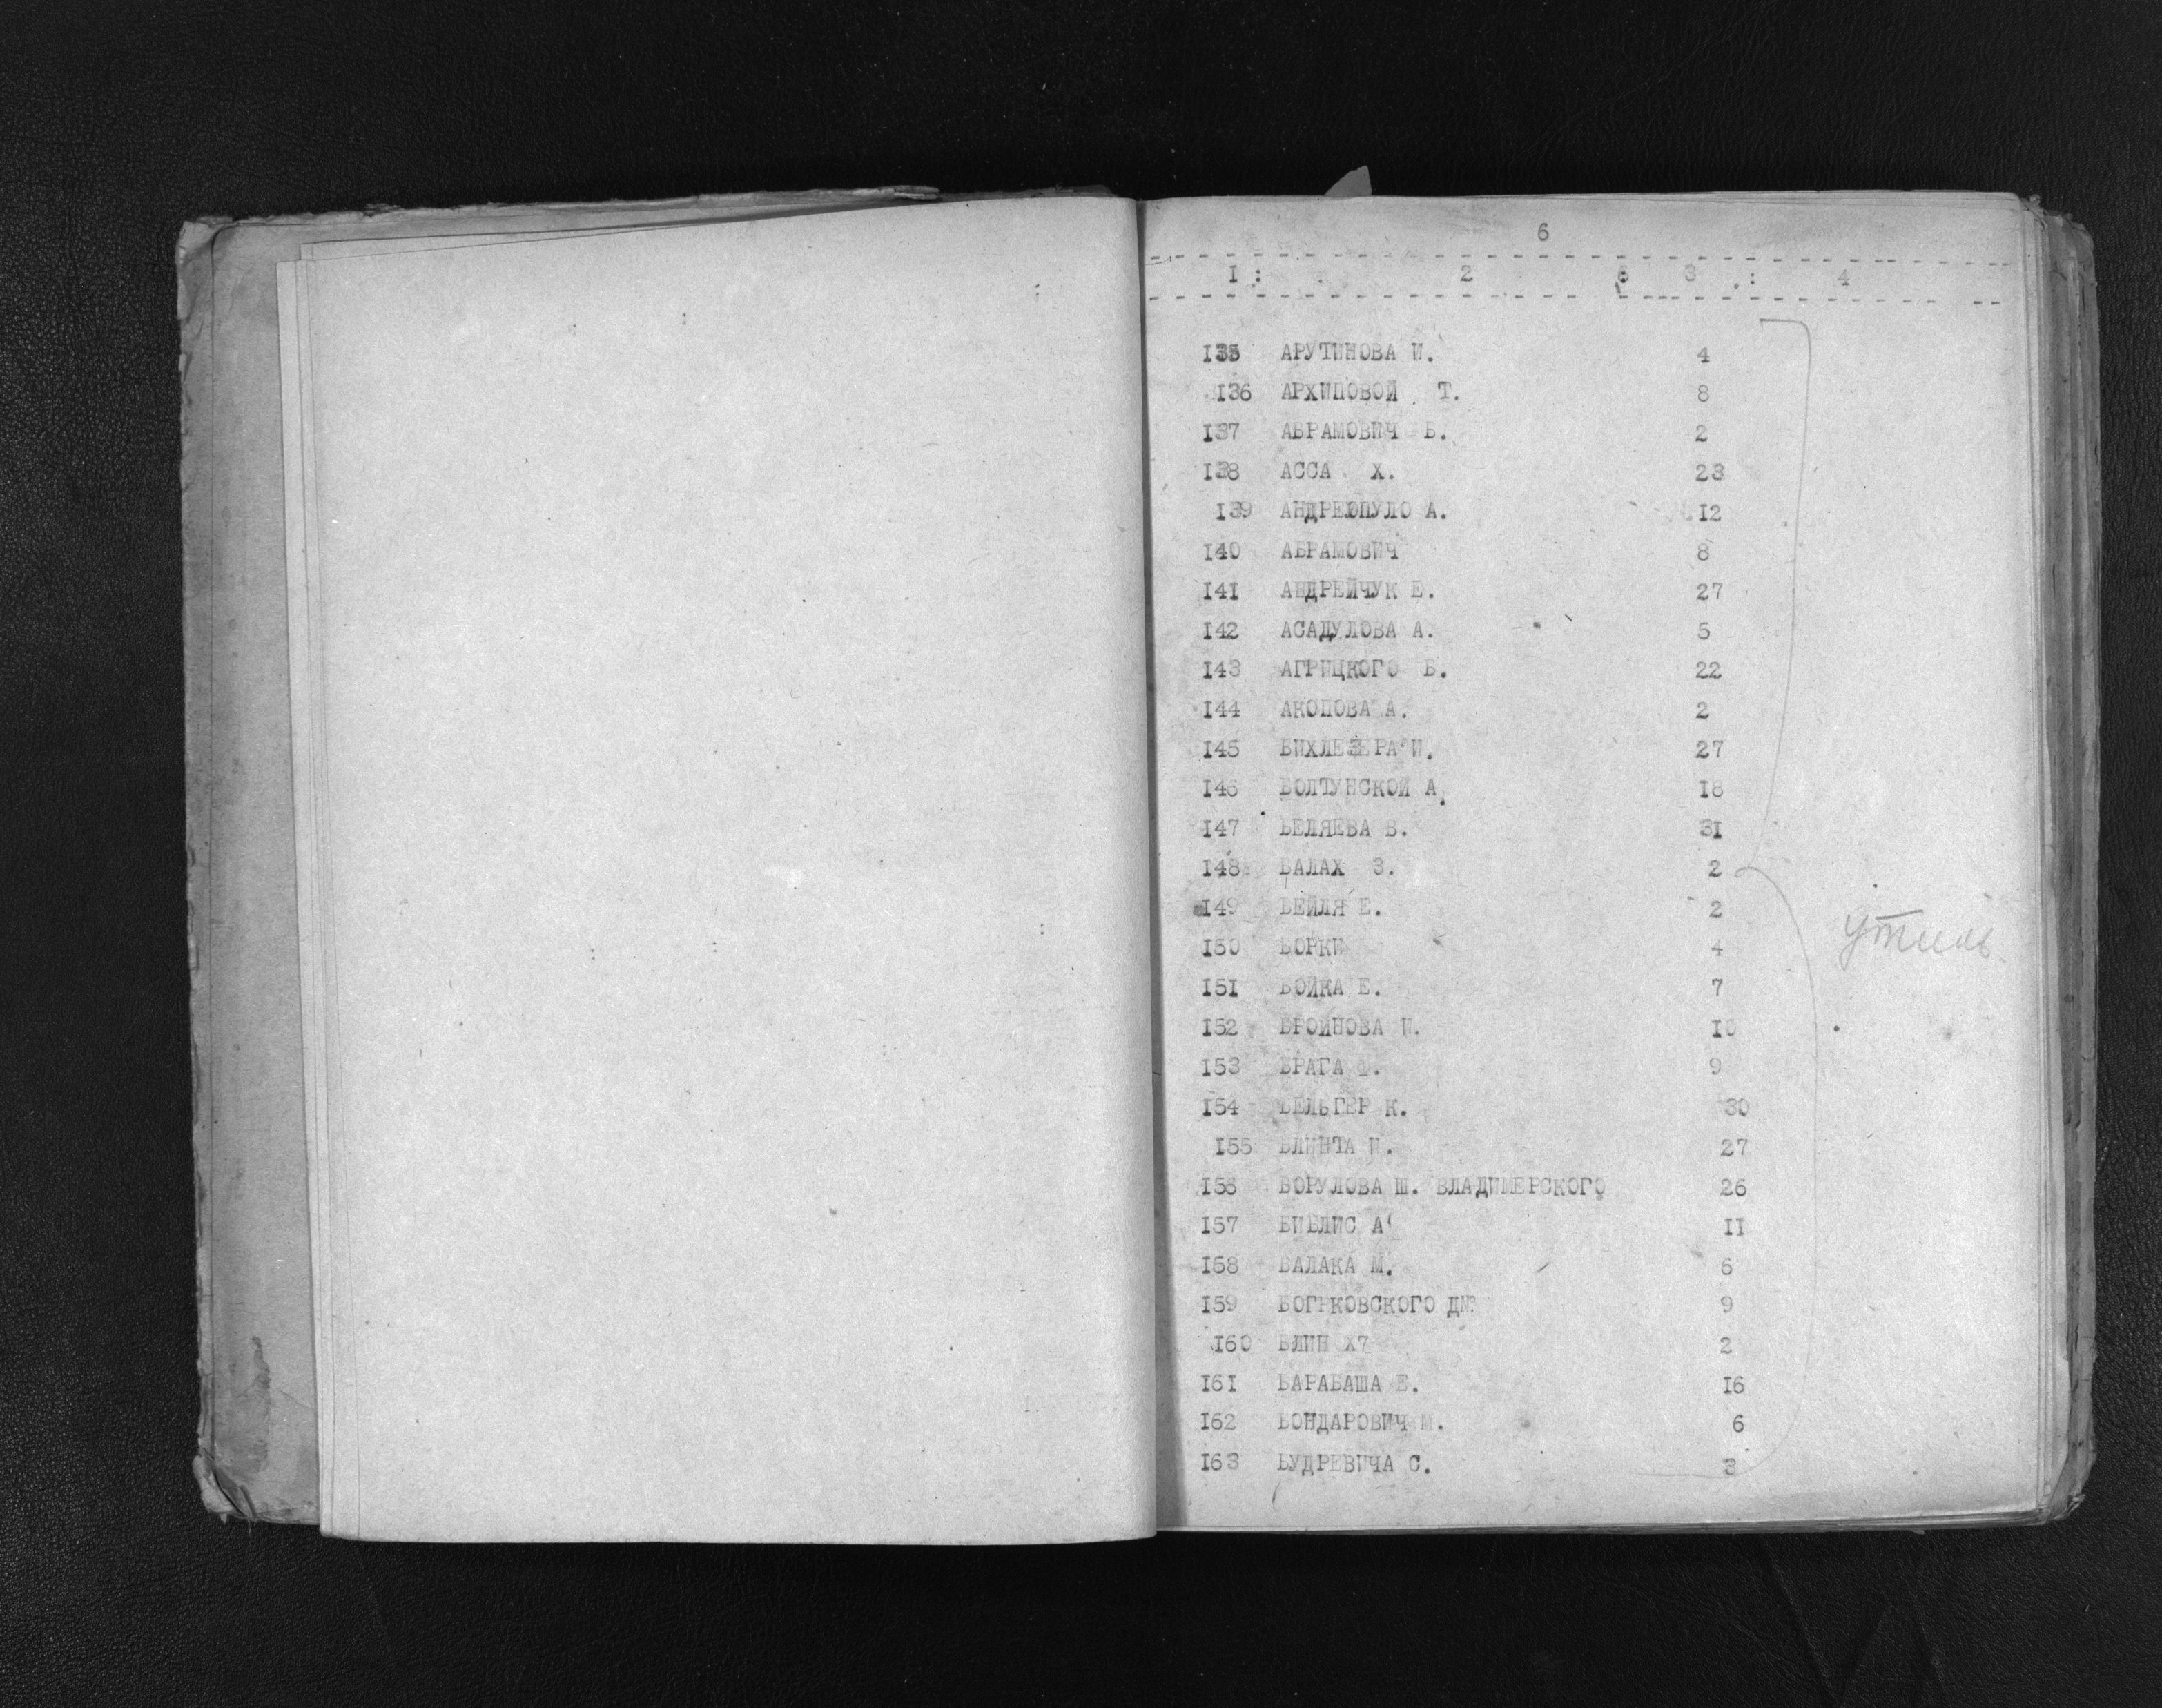 6
I : 2 : 3 : 4
135 АРУТИНОВА И. 4
136 АРХИПОВОЙ Т. 8
137 АБРАМОВИЧ Б. 2
138 АССА Х. 23
139 АНДРЕОПУЛО А. 12
140 АБРАМОВИЧ 8
141 АНДРЕЙЧУК Е. 27
142 АСАДУЛОВА А. 5
143 АГРИЦКОГО Б. 22
144 АКОПОВА А. 2
145 БИХЛЕЗЕРА И. 27
146 БОЛТУНСКОЙ А. 18
147 БЕЛЯЕВА В. 31
148 БАЛАХ З. 2
149 БЕЙЛЯ Е. 2
150 БОРКИ 4
151 БОЙКА Е. 7
152 БРОЙНОВА И. 10
153 БРАГА 9
154 БЕЛЬГЕР К. 30
155 БЛИНТА И. 27
156 БОРУЛОВА Ш. ВЛАДИМЕРСКОГО 26
157 БИБЛИС А 11
158 БАЛАКА М. 6
159 БОГРКОВСКОГО Д№ 9
160 БЛИН Х7 2
161 БАРАБАША Е. 16
162 БОНДАРОВИЧ М. 6
163 БУДРЕВИЧА С. 3
утиль